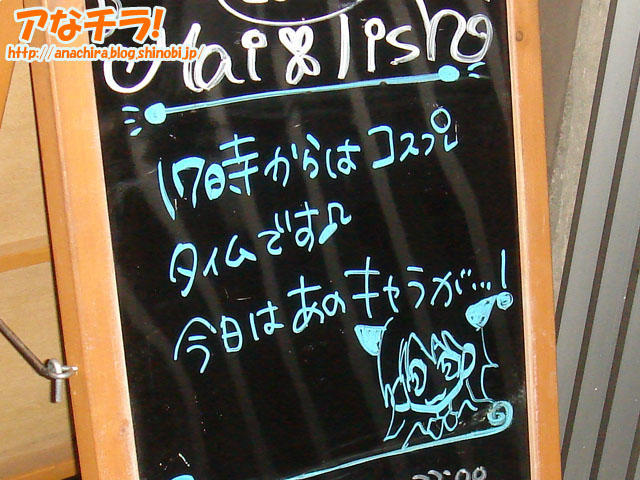 アなチラ!
http://anachira.blog.shinobi.jp/
Mai✖lish
17時からはコスプレ
タイムです♪
今日はあのキャラが…!
22:00